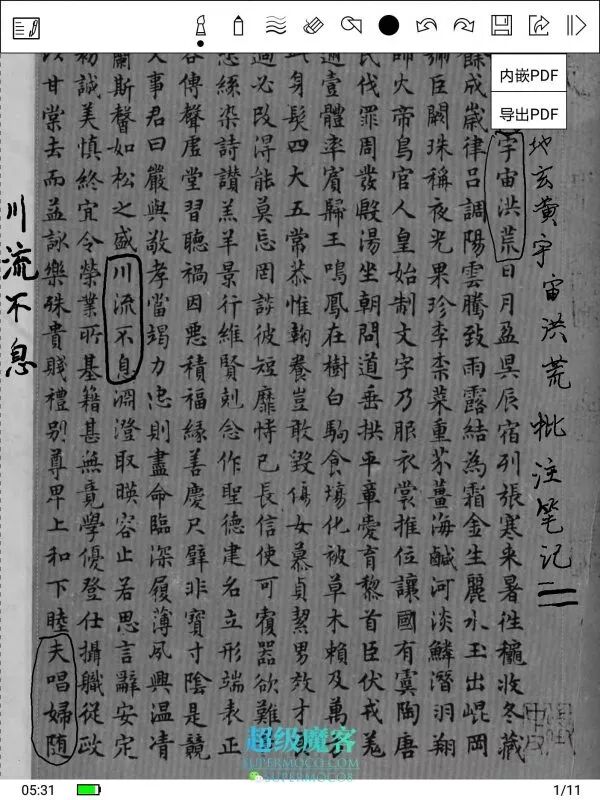 内嵌PDF
导出PDF
地玄黄宇宙洪荒 批注笔记
宇宙洪荒日月盈昃辰宿列張寒来暑往穐收冬藏
餘成嵗律呂調陽雲騰致雨露結為霜金生麗水玉出崐岡
號臣闕珠稱夜光果珍李柰菜重芥薑海鹹河淡鱗潛羽翔
師火帝鳥官人皇始制文字乃服衣裳推位讓國有虞陶唐
民伐罪周發殷湯坐朝問道垂拱平章愛育黎首臣伏戎羌
邇壹體率賓歸王鳴鳳在樹白駒食場化被草木賴及萬
身髮四大五常恭惟鞠養豈敢毀傷女慕貞絜男效才
過必改得能莫忘罔談彼短靡恃己長信使可覆器欲難
悲絲染詩讚羔羊景行維賢剋念作聖德建名立形端表正
谷傳聲虛堂習聽禍因惡積福緣善慶尺璧非寶寸陰是競
父事君曰嚴與敬孝當竭力忠則盡命臨深履薄夙興温凊
蘭斯馨如松之盛川流不息淵澄取暎容止若思言辭安定
初誠美慎終宜令榮業所基籍甚無竟學優登仕攝職從政
以甘棠去而益詠樂殊貴賤禮别尊卑上和下睦夫唱婦随
川流不息
超级魔客
SUPERMOCO.COM
SUPERMOCO8
05:31
1/11